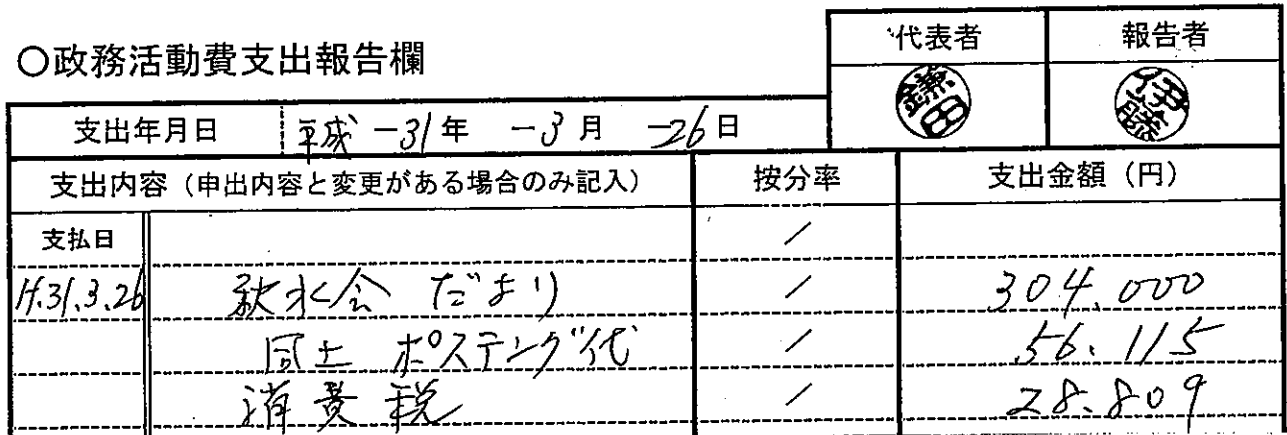 代表者 報告者
○政務活動費支出報告欄
鎌田 伊藤
支出年月日 平成 -31年 -3月 -26日
支出内容（申出内容と変更がある場合のみ記入） 按分率 支出金額（円）
支払日 /
H.31.3.26 秋水会 だより / 304.000
同上 ポスティング代 / 56.115
消費税 / 28.809